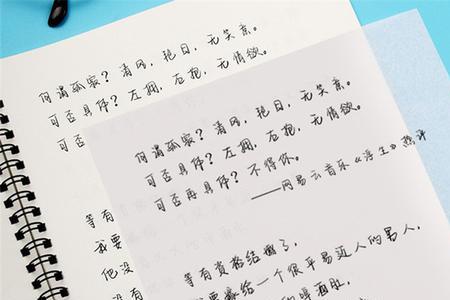 何谓孤寂？清风，艳日，无笑意。
可否具体？左拥，右抱，无情欲。
可否
等有
我要
他没
何谓孤寂？清风，艳日，无笑意。
可否具体？左拥，右抱，无情欲。
可否再具体？不得你。
——网易云音乐《浮生》热评
等有资格结婚了，
要嫁给一个很平易近人的男人，